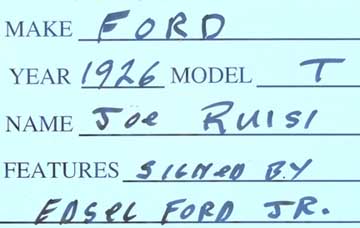 MAKE FORD
YEAR 1926 MODEL T
NAME Joe RUISI
FEATURES SIGNeD BY
EDSeL FORD JR.